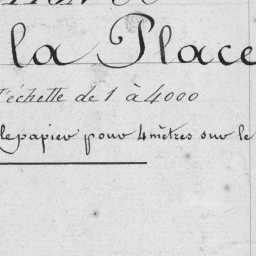 la Place
l'échelle de 1 à 4000
le papier pour 4 mètres sur le